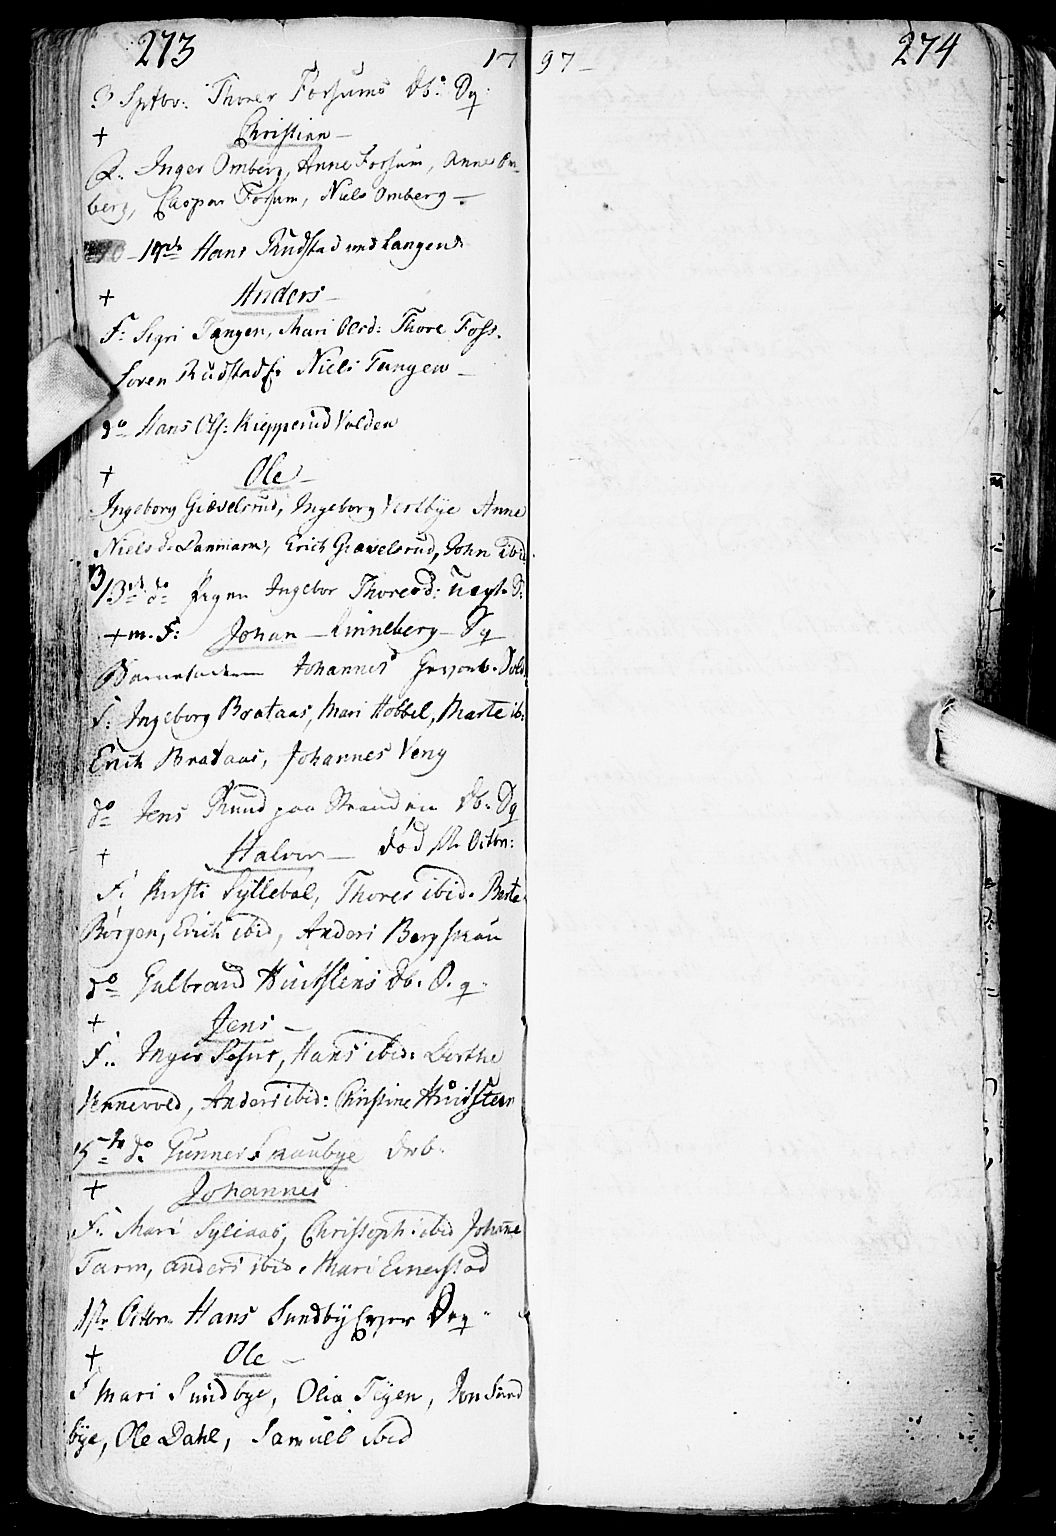 273 17 97 - 274
3 Sptbr: Thorer Forsums Db: Dq
+ Christian -
F: Inger Omberg, Anne Forsum, Anne Om-
berg, Caspar Forsum, Niels Omberg -
Hans Rudstad und Langens
+ Anders -
F: Sigri Tangen, Mari Olsd: Thore Foss.
Soren Rudstad Niels Tangen -
do Hans Ols: Kiepperud Volden
+ Ole -
Ingeborg Giævelsrud, Ingeborg Vestbye Anne
Nielsd. Erich Giævelsrud, John ibid.
13 do Pigen Ingebor Thoresd: uegt. D:
+ m. F: Johan - Linneberg - Dq
Barnefaderen Johannes
F: Ingeborg Brataas, Mari Hobbel, Marte ib:
Erich Brataas, Johannes Veng
do Jens Rund paa Stranden Db. Dq
+ Halvor - død Octbr:
F: Kirsti Syllebøl, Thorer ibid. Berte
Børgen, Erich ibid, Anders Bergskau
do Gulbrand Huitstens Db. D. q.
+ Jens -
F: Inger Hans ibid: Berthe
Vennevold, Anders ibid: Christine Huitsteen
15 do Gunner Skaubye Drb.
+ Johannes
F: Mari Syliaas, Christoph: ibid Johane
Tarm, Anders ibid. Mari Enerstad
1ste Octbr. Hans Sundby Eyer Drq.
+ Ole -
F Mari Sundbye, Olia Tigen, Jon Sund
bye, Ole Dahl, Samuel ibid